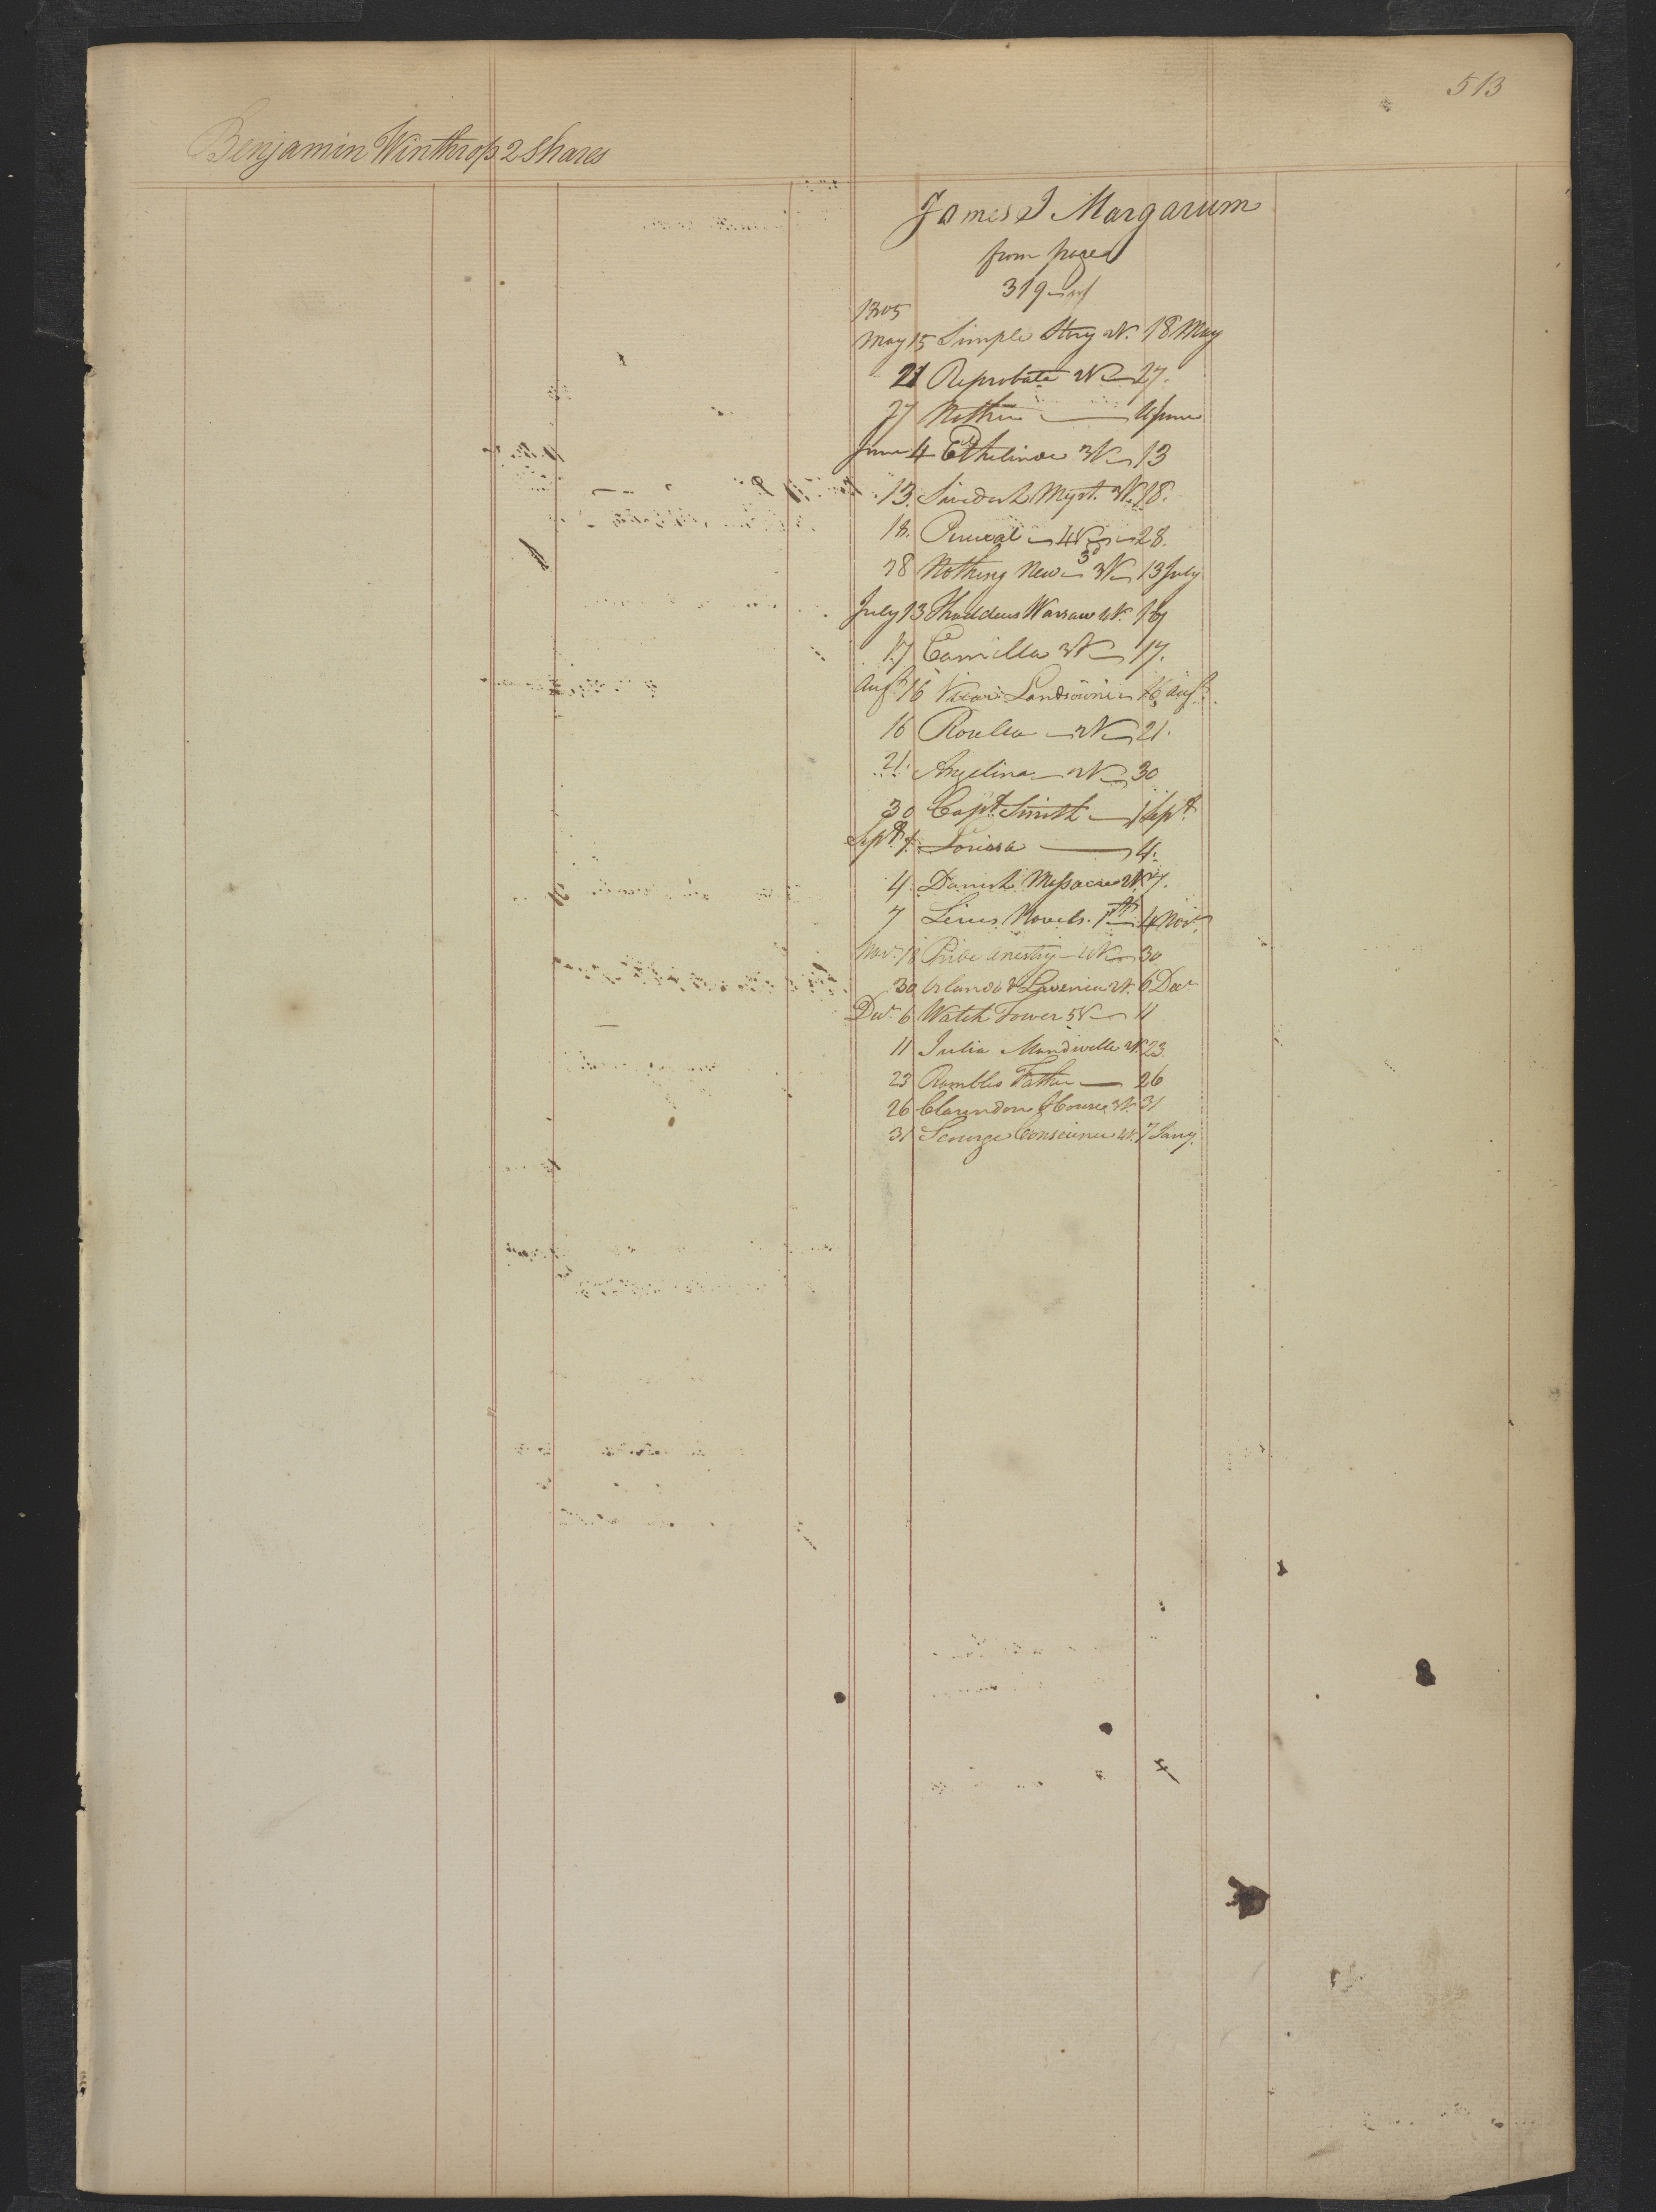 513
Benjamin Winthrop 2 Shares
James J Margarum
from page
319
1805
May 15 Simple Story 2V. 18 May
21 Reprobate 2V 27.
27 4 June
June 4 Ethelinde 3V 13
13. Myst. 3V. 18.
18. Percival 4V 28.
28 Nothing New 3V 13 July
July 13 Thaddeus Warsaw 2V. 17
17 Camilla 3V 17.
Augt 16 Vicar Landsowne 16 Augt.
16 Rosella 2V 21.
21. Angelina 2V 30
30 Capt. Smith 1 Sept.
Sept. 1. Lorissa 4.
4. Danish Massacre 2V. 7.
7 Novels. 4 Novr.
Novr. 18 Pride Anestry 4V 30
30 Orlando & Lavenia 2V. 6 Decr.
Decr. 6 Watch Tower 5V 11
11 Julia Mandville 2V. 23.
23 Rambles Father 26
26 Clarendon House 3V. 31
31 Scourge Conscience 4V. 7 Jany.